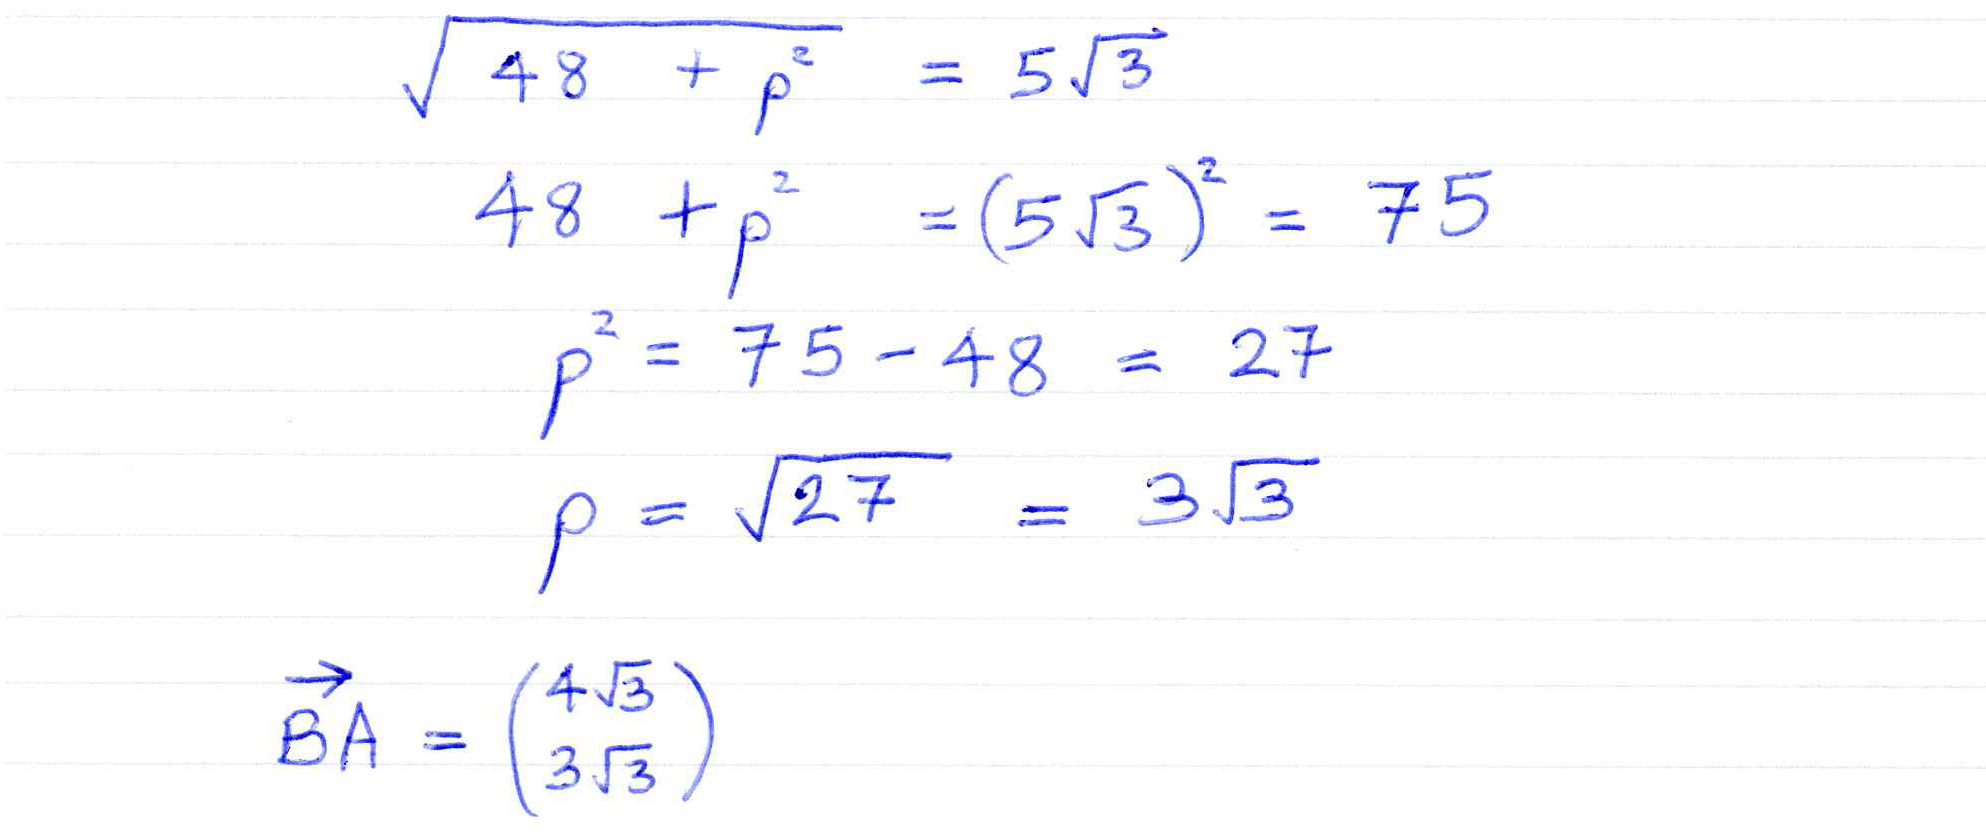 √(48 + p²) = 5√3
48 + p² = (5√3)² = 75
p² = 75 - 48 = 27
p = √27 = 3√3
→BA = (4√3
3√3)